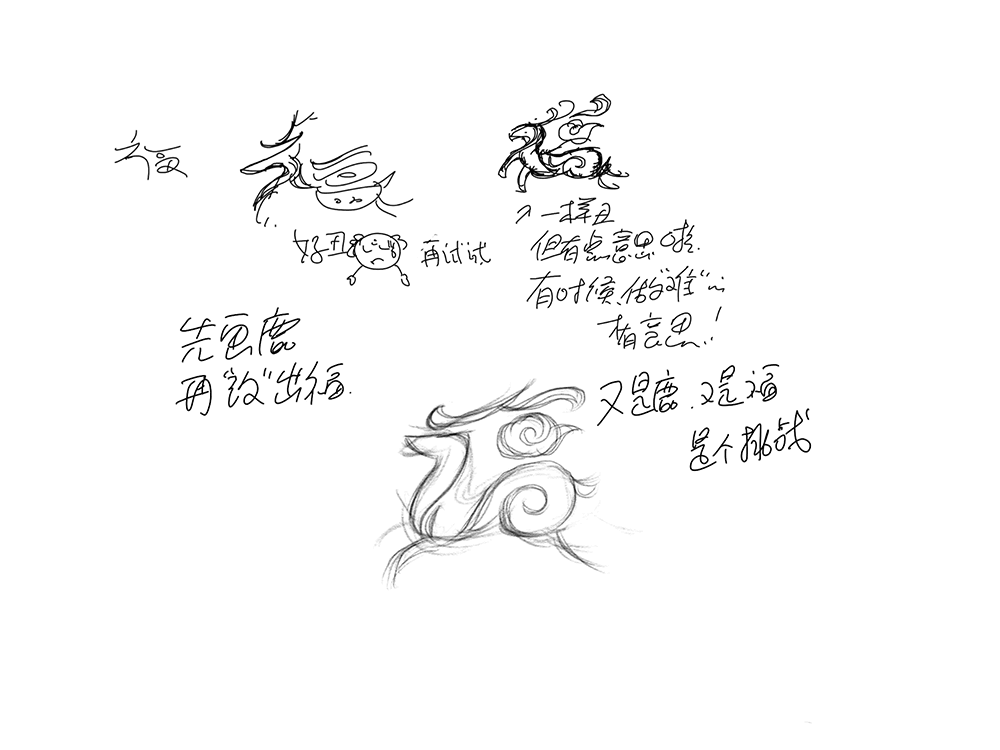 福
好丑 再试试
↗ 一样丑
但有点意思啦.
有时候,做"难"…
才有意思!
先画鹿
再"改"出福.
又是鹿.又是福
是个挑战